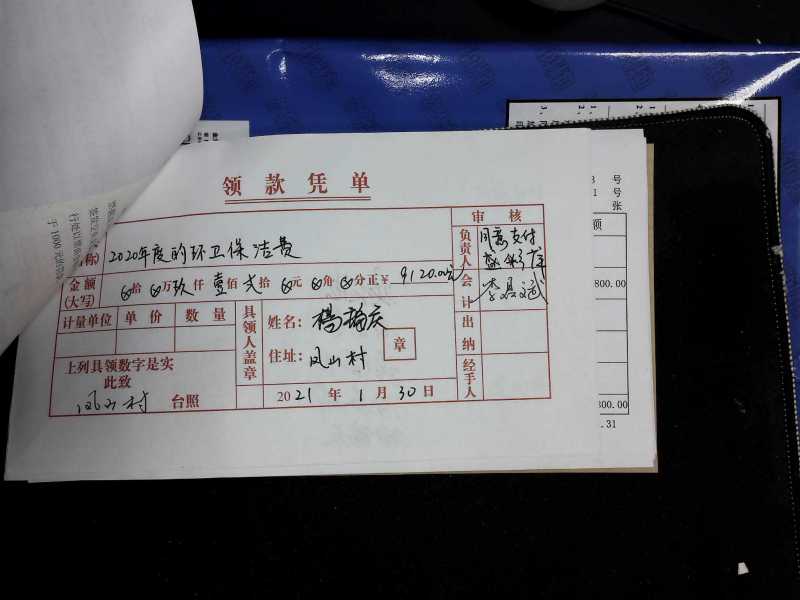 领款凭单
审核
称) 2020年度的环卫保洁费
金额(大写) ⊗拾⊗万玖仟壹佰贰拾⊗元⊗角⊗分正¥ 9120.00元
负责人 同意支付
会计
计量单位 单价 数量
具领人盖章
姓名:杨
住址:凤山村
章
出纳
经手人
上列具领数字是实
此致
凤山村 台照
2021年1月30日
号
号
张
额
800.00
800.00
.31
于1000